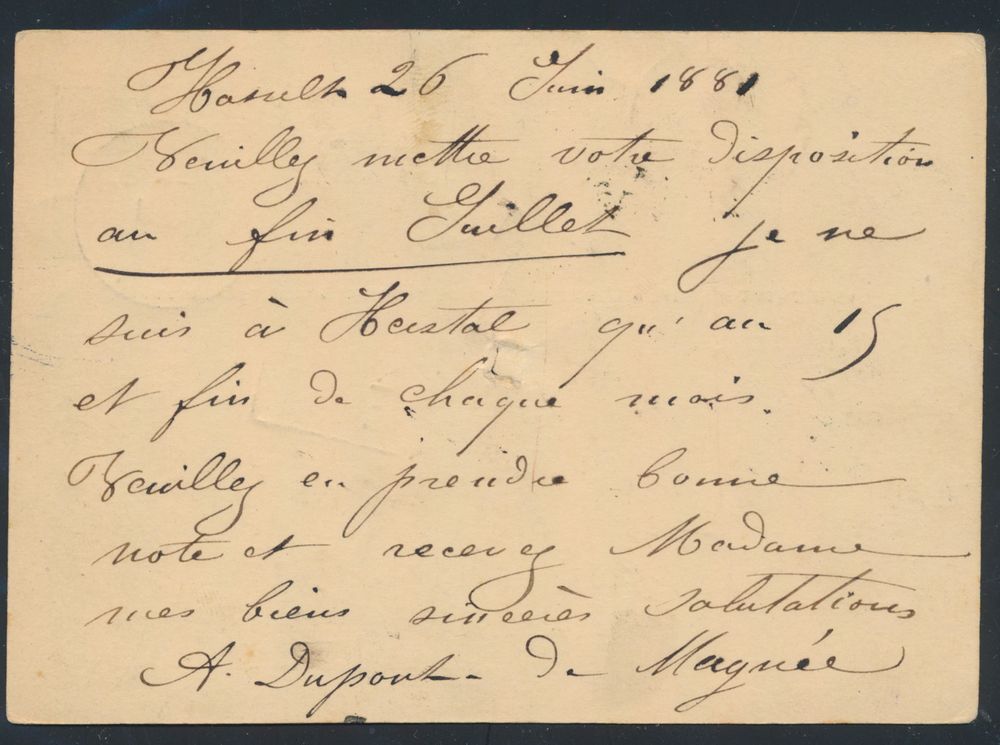 Hasselt 26 Juin 1881
Veuillez mettre votre disposition
au fin Juillet je ne
suis à Herstal qu'au 15
et fin de chaque mois.
Veuillez en prendre bonne
note et recevez Madame
mes biens sincères salutations
A. Dupont-de Magnée